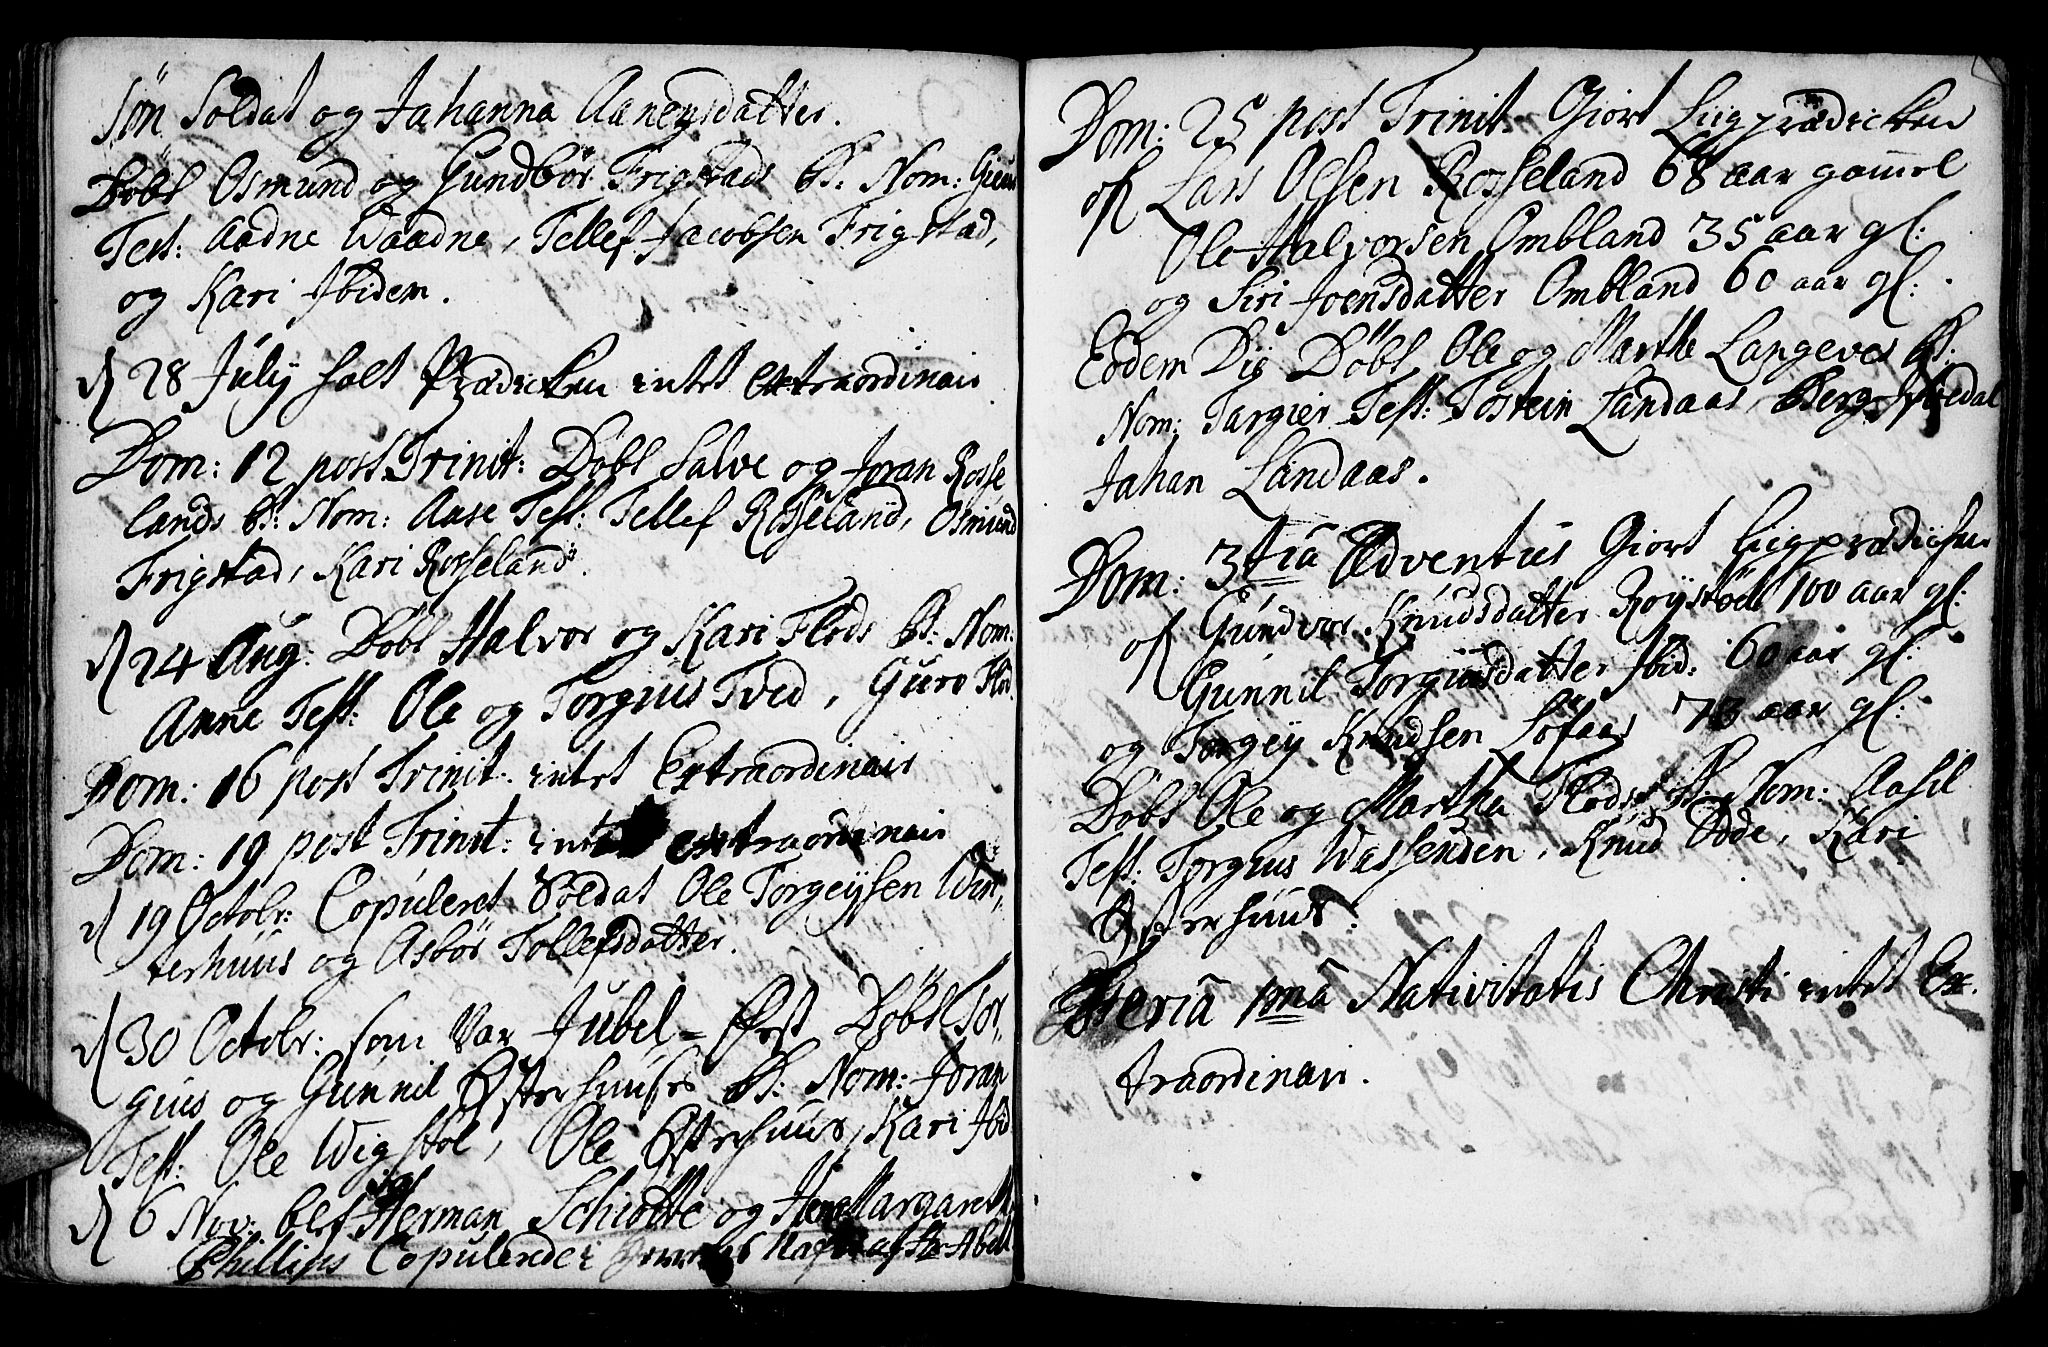 Søn Soldat og Jahanna Aanensdatter.
Døbt Osmund og Gundbør Frigstads B: Nom:
Test: Aadne Waadne, Tellef Jacobsen Frigstad,
og Kari Ibidem.
d 28 July holt Prædicken intet extraordinair
Dom: 12 post Trinit: Døbt Salve og Joran Rosse
lands B: Nom: Aase Test: Tellef Rosseland, Osmund
Frigstad, Kari Rosseland.
d 24 Aug: Døbt Halvor og Kari Flods B: Nom:
Anne Test: Ole og Torgius Tved, Guro Flod.
Dom: 16 post Trinit: intet Extraordinair
Dom: 19 post Trinit: intet extraordinair
d 19 Octobr: Copuleret Soldat Ole Torgeysen Win,
terhuus og Asbør Tollefsdatter.
d 30 Octobr: som var Jubel-Fest Døbt Tor-
gius og Gunnil Østerhuuses B: Nom: Joran
Test: Ole Wigstøl, Ole Østrehuus, Kari Ibid
d 6 Nov: blef Herman Schiøtte og Margareth
Phillips Copulerde af Hr Abel
Dom: 25 post Trinit: Giort Liigprædicken
of Lars Olsen Rosseland 68 aar gamel
Ole Halvorsen Ombland 35 aar gl:
og Siri Joensdatter Ombland 60 aar gl:
Eodem Die Døbt Ole og Marthe Langeves B:
Nom: Targier Test: Tostein Landaas, Berge
Jahan Landaas.
Dom: 3tia Adventus Giort Liigprædicken
of Gundvor Knudsdatter Røystøel 100 aar gl:
Gunnil Torgiusdatter Ibid: 60 aar gl:
og Torgey Knudsen Løfaas 73 aar gl:
Døbt Ole og Martha Flods B: Nom: Aasil
Test: Torgius Wassenden, Knud Odde, Kari
Østerhuus.
Feria 1ma Nativitatis Christi intet Ex-
traordinair.